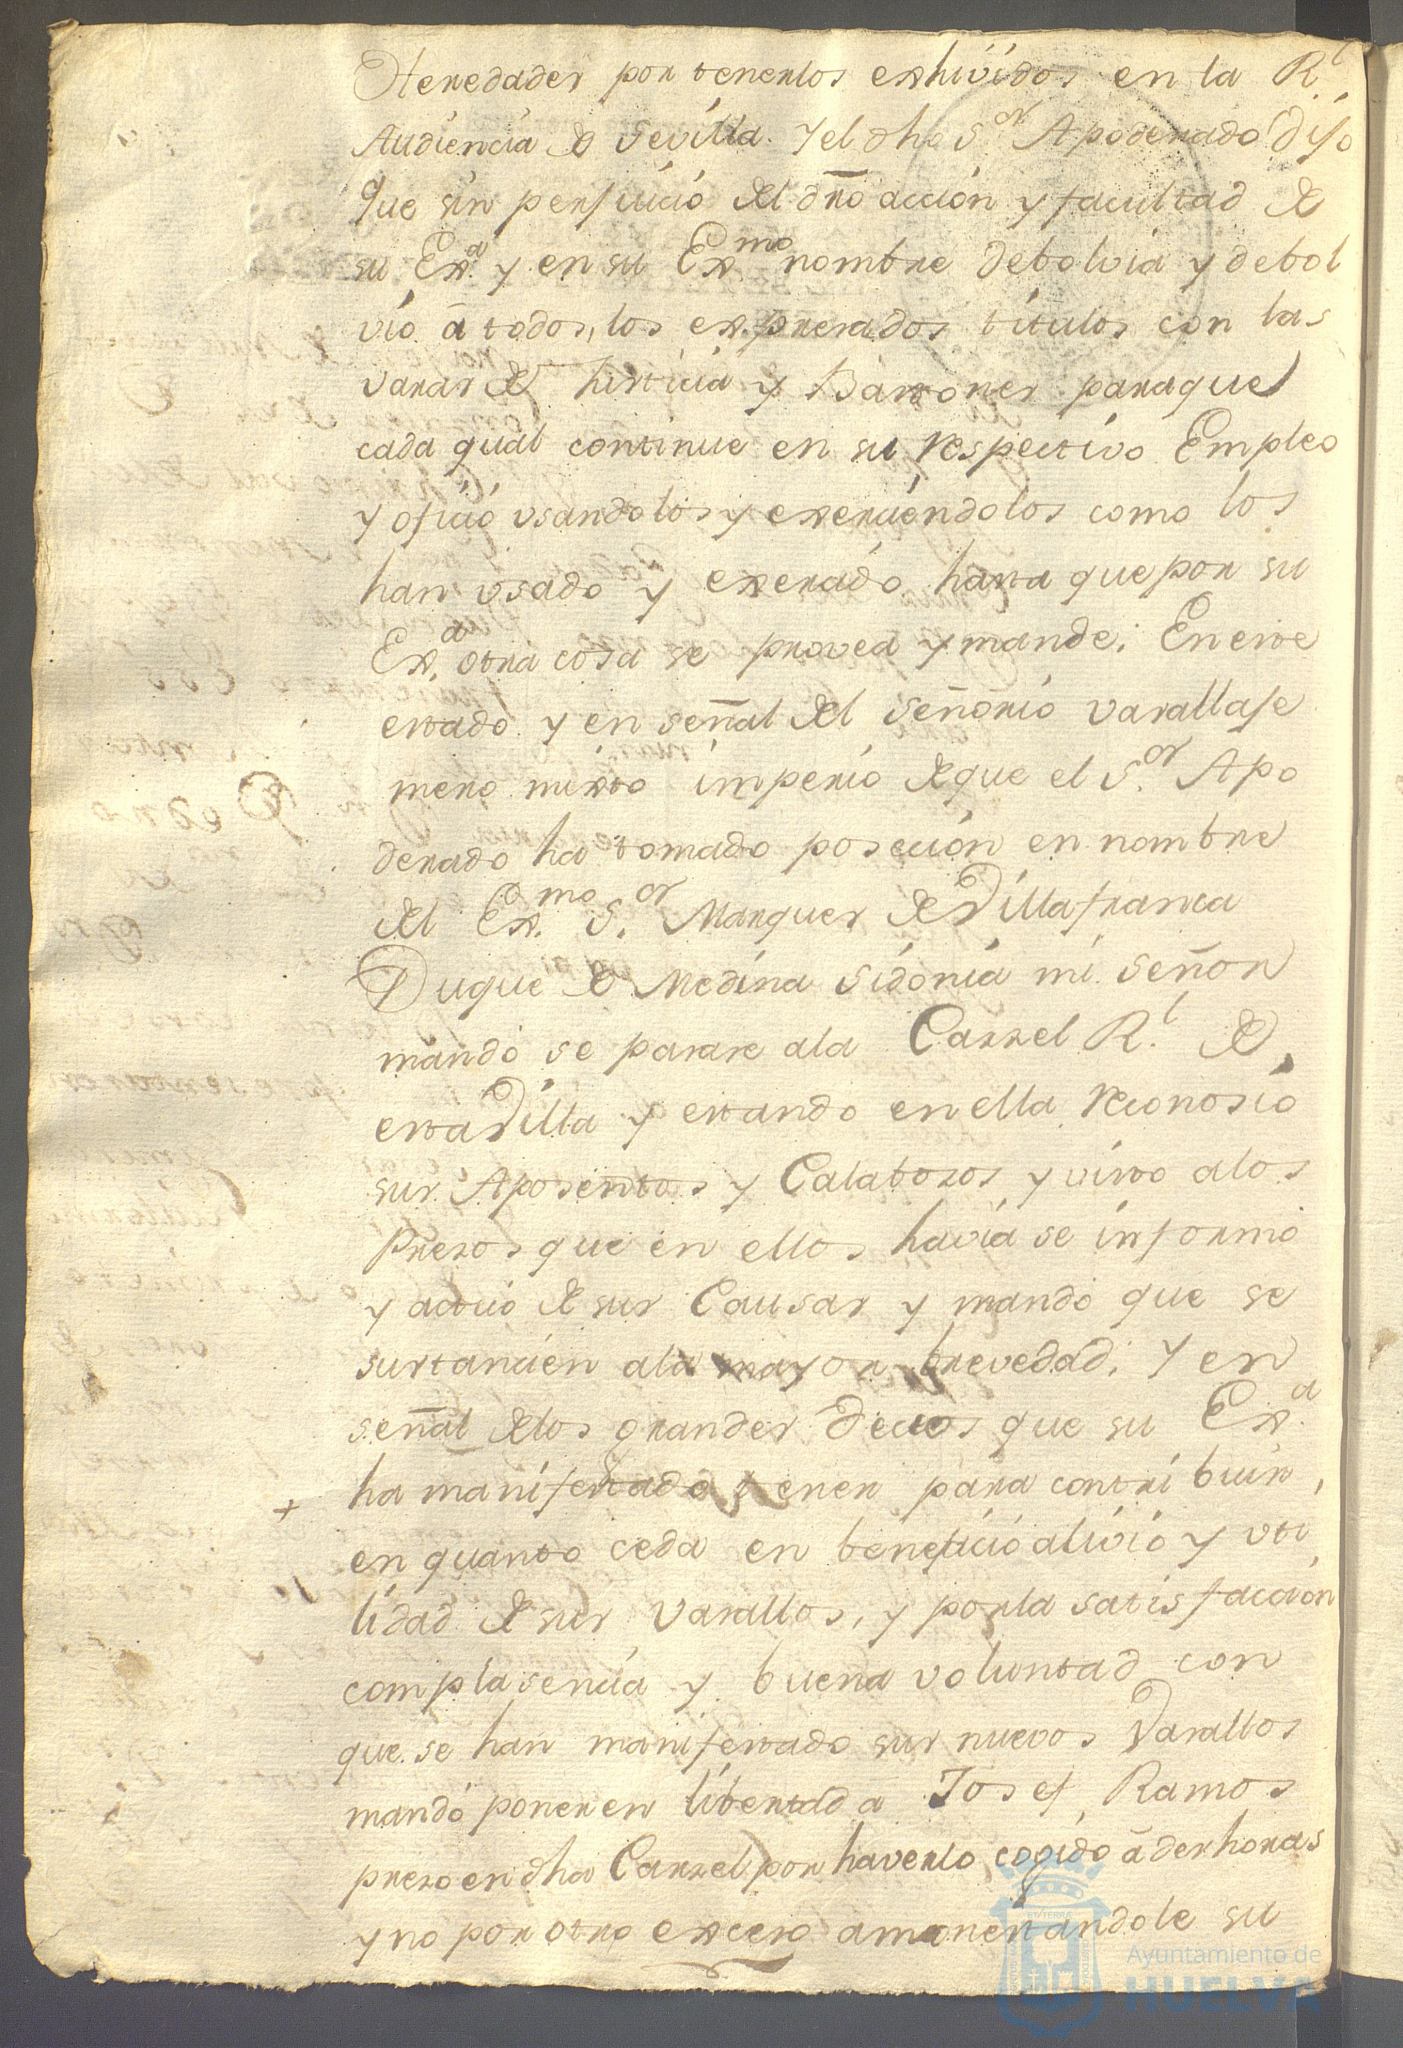 Heredades por tenerlos exhividos en la R.l
Audiencia de Sevilla. Y el dho S.or Apoderado dijo
que sin perjuicio del dro accion y facultad de
su Ex.a y en su Ex.mo nombre debolvia y debol
vio â todos, los expresados titulos con las
varas de Justicia y Bastones paraque
cada qual continue en su respectivo Empleo
y oficio vsandolos y exerciendolos como los
han vsado y exercido, hasta que por su
Ex.a otra cosa se provea y mande; En este
estado y en señal del señorio vasallaje
mero mixto imperio de que el S.or Apo
derado ha tomado poseción en nombre
del Ex.mo S.or Marques de Villafranca
Duque de Medina Sidonia mi señor
mandó se pasase ala Carzel R.l de
esta Villa y estando en ella reconosio
sus Aposentos y Calabosos y visto alos
Presos que en ellos havia se informó
y actuó de sus Causas y mandó que se
sustancien ala mayor brevedad; Y en
señal delos grandes deceos que su Ex.a
ha manifestado tener para contribuir,
en quanto ceda en beneficio alivio y vti
lidad de sus vasallos, y por la satisfaccion
complasencia y buena voluntad con
que se han manifestado sus nuevos Vasallos
mandó poner en libertad a Josef Ramos
preso en dha Carzel por haverlo cogido â des horas
y no por otro exceso amonestandole su
Ayuntamiento de
HUELVA